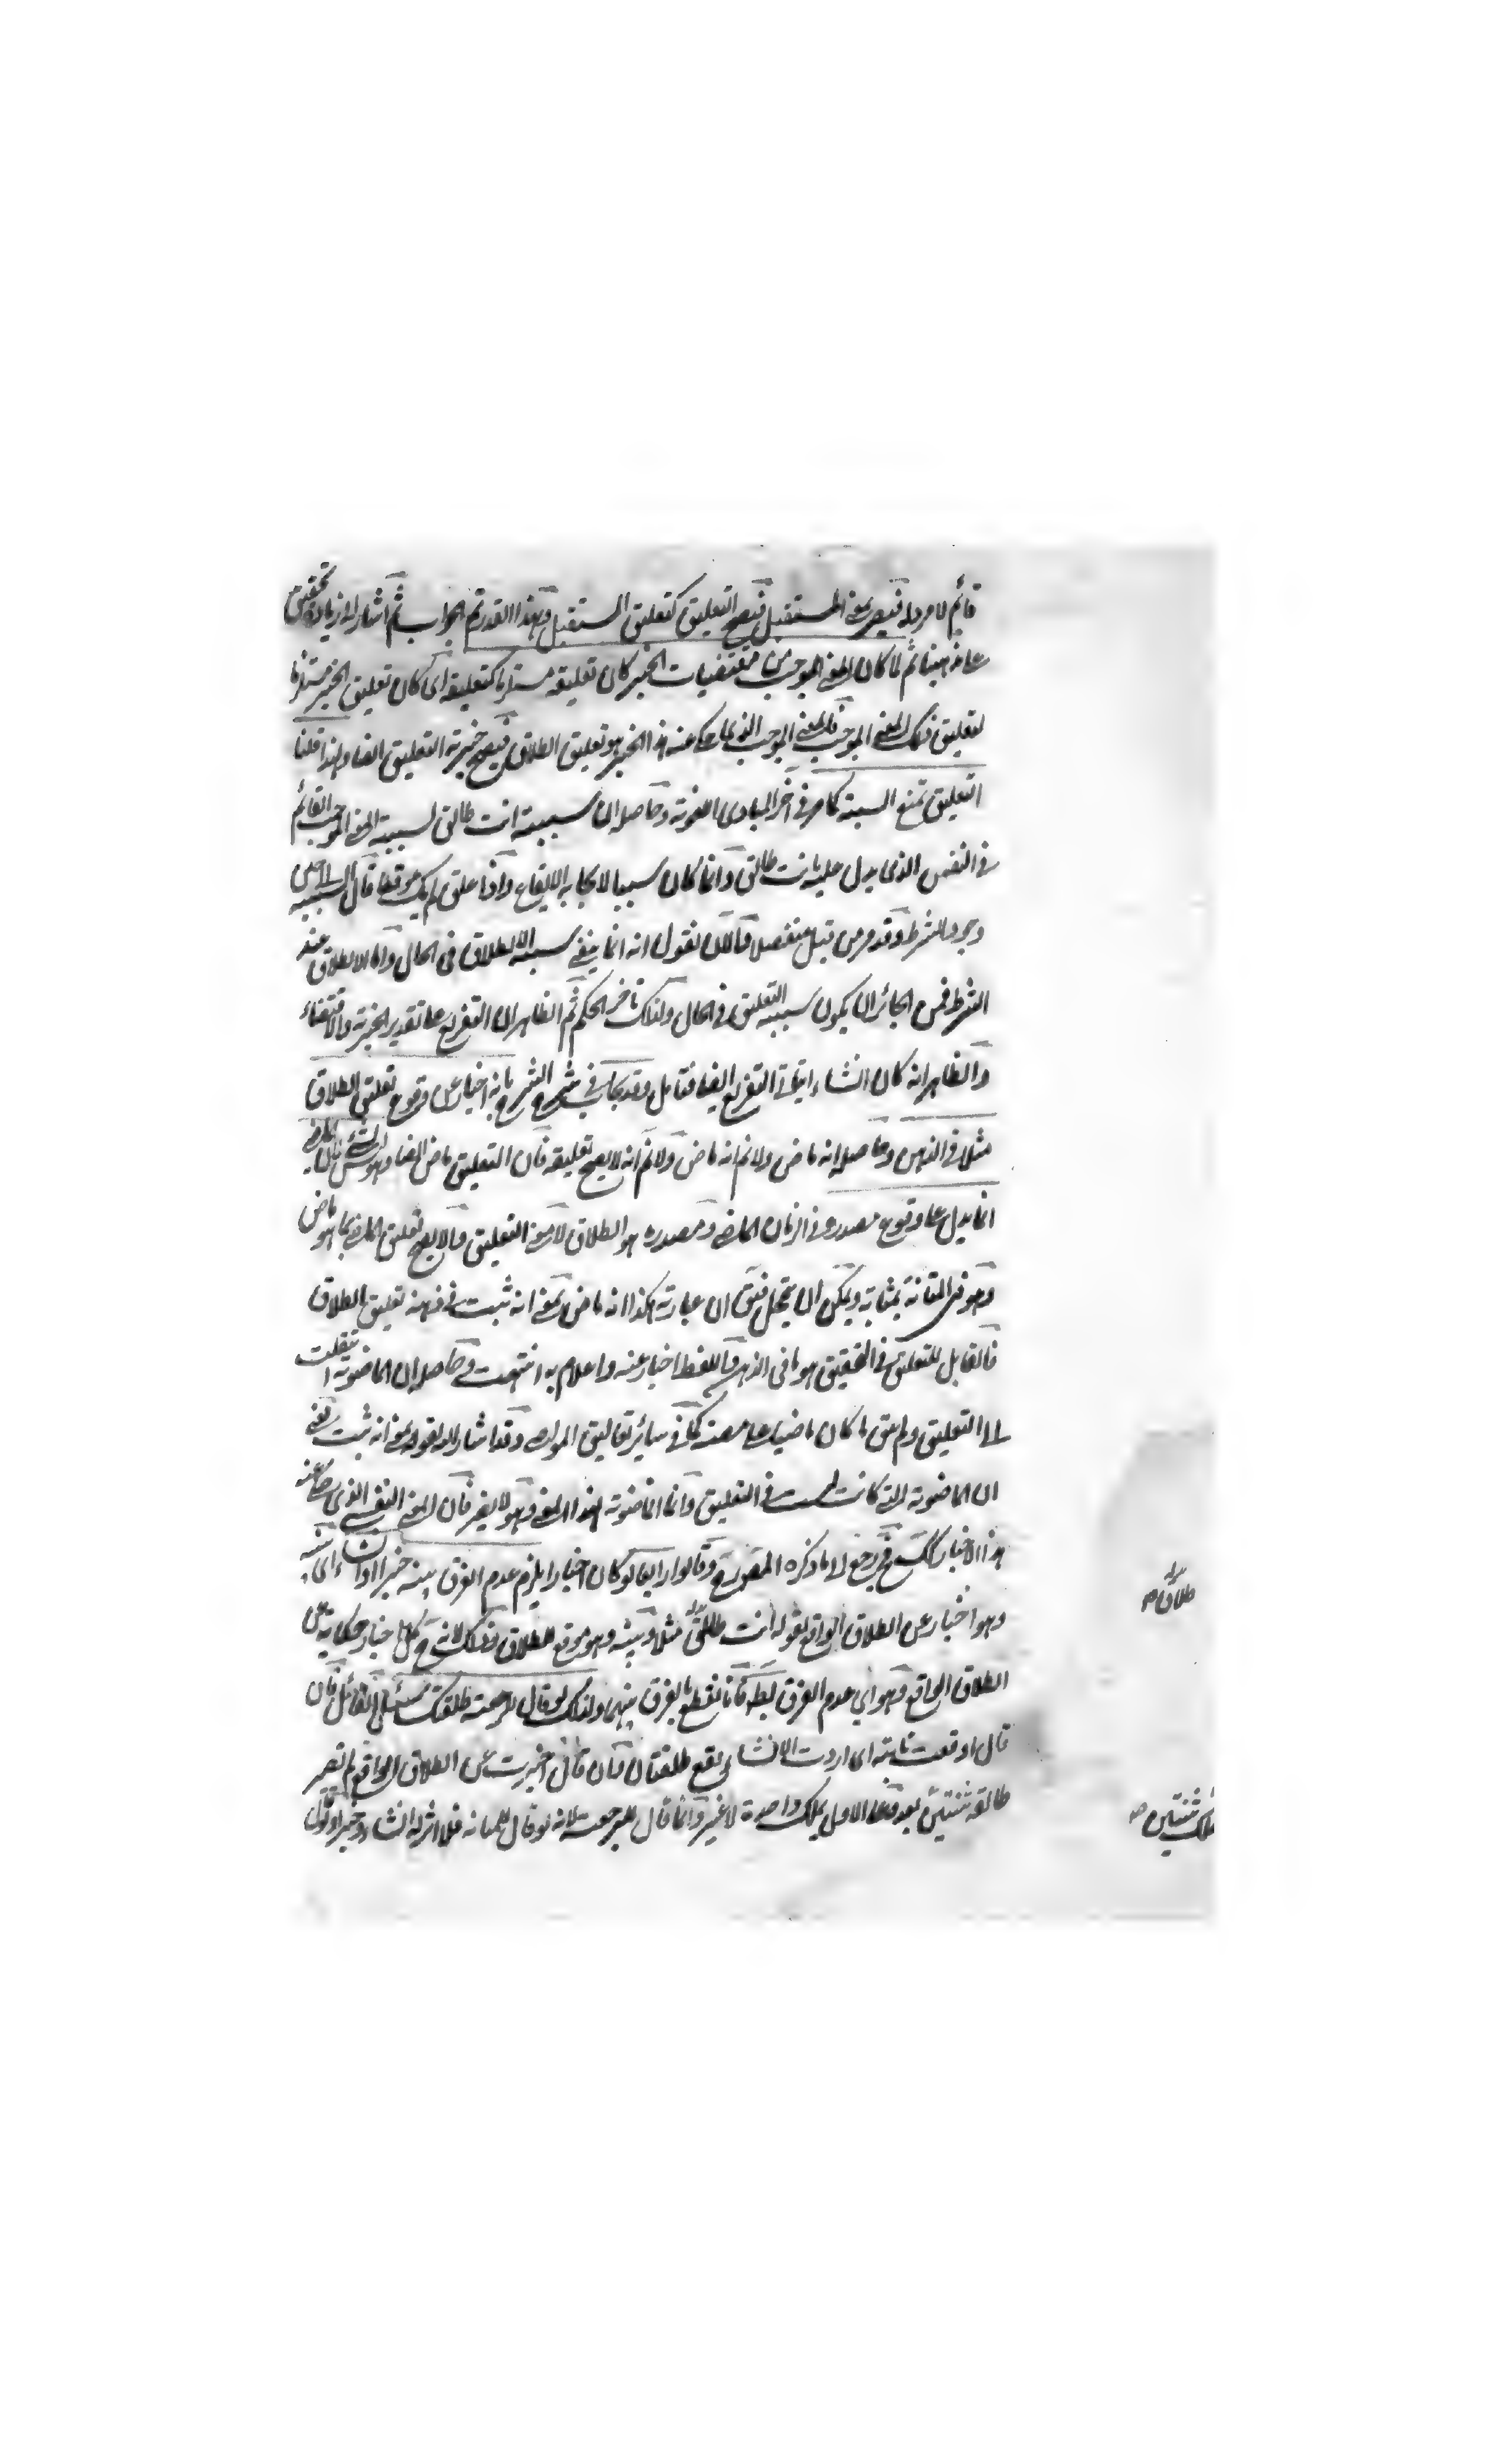 قائم لا مرد له فيصير بمعنى المستقبل فيصح التعليق كتعليق المستقبل وبهذا القدر تم الجواب ثم اشار الى زيادة تحقيق
فقال ثم لما كان المعنى الموجب من مقتضيات الخبر كان تعليقه مستلزما كتعليقه اى كان تعليق الخبر مستلزما
لتعليق ذلك المعنى الموجب فالمعنى الموجب الذى يحكى عنه هذا الخبر هو تعليق الطلاق فيصح خبرية التعليق ايضا ولهذا قلنا
التعليق يمنع السببية كما مر فى آخر المبادى اللغوية وحاصله ان سببية انت طالق لسببية المعنى الموجب القائم
فى النفس الذى يدل عليه بانت طالق وانما كان سببا لايجابه الايقاع واذا علق لم يكن موقعا قال السببية الى حين
وجود الشرط وقد مر من قبل منفصلا فالآن نقول انه انما ينفى سببية الطلاق فى الحال واما الطلاق عند
الشرط فمن الجائز ان يكون سببية التعليق فى الحال ولذلك تأخر الحكم ثم الظاهر ان التفريع على تقدير الخبرية والاقتضاء
والظاهر انه كان انشاء يتأتى التفريع ايضا فتامل وقد يجاب فى شرح الشرح بانه اخبار عن وقوع تعليق الطلاق
مثلا فى الذهن وحاصله انه ماض ولا نم انه ماض ولا نم انه لا يصح تعليقه فان التعليق ماض ايضا وهو ليس بشئ فان الماضى
انما يدل على وقوع مصدره فى الزمان الماضى ومصدره هو الطلاق لا معنى التعليق ولا يصح تعليق الماضى بما هو ماض
وهو فى المتانة بمثابة ويمكن ان يتمحل فيق ان عبارته هكذا انه ماض بمعنى انه ثبت فى ذهنه تعليق الطلاق
فالقابل للتعليق فى التحقيق هو ما فى الذهن واللفظ اخبار عنه واعلام به انتهت وحاصله ان الماضوية انتقلت
الى التعليق ولم يبق ما كان ماضيا على مضيه كما فى سائر تعاليق المواضى وقد اشار اليه بقوله بمعنى انه ثبت يعنى
ان الماضوية التى كانت ليست فى التعليق وانما الماضوية لهذا المعنى وهو لا يضر فان المعنى النفسى الذى يحكى عنه
هذا الاخبار كك فح يرجع الى ما ذكره المص رح وقالوا رابعا لو كان اخبارا يلزم عدم الفرق بينه خبرا وانشاء اى بينه
وهو اخبار عن الطلاق الواقع بقوله انت طالق مثلا وبينه وهو موقع للطلاق وذلك لانه ح كل اخبار حكاية عن
الطلاق الواقع وهو اى عدم الفرق بط فانا نقطع بالفرق بينهما ولذلك لو قال للرجعية طلقتك سئل القائل فان
قال اوقعت ثانية اى اردت الانشاء يقع طلقتان وان قال اخبرت عن الطلاق الواقع لم تصر
طالقة ثنتين بعد وقوع الاول يملك واحدة لا غير وانما قال للرجعية لانه لو قال للمبانة فلا اثر له انشاء وخبرا
طلاق صح
ثنتين صح